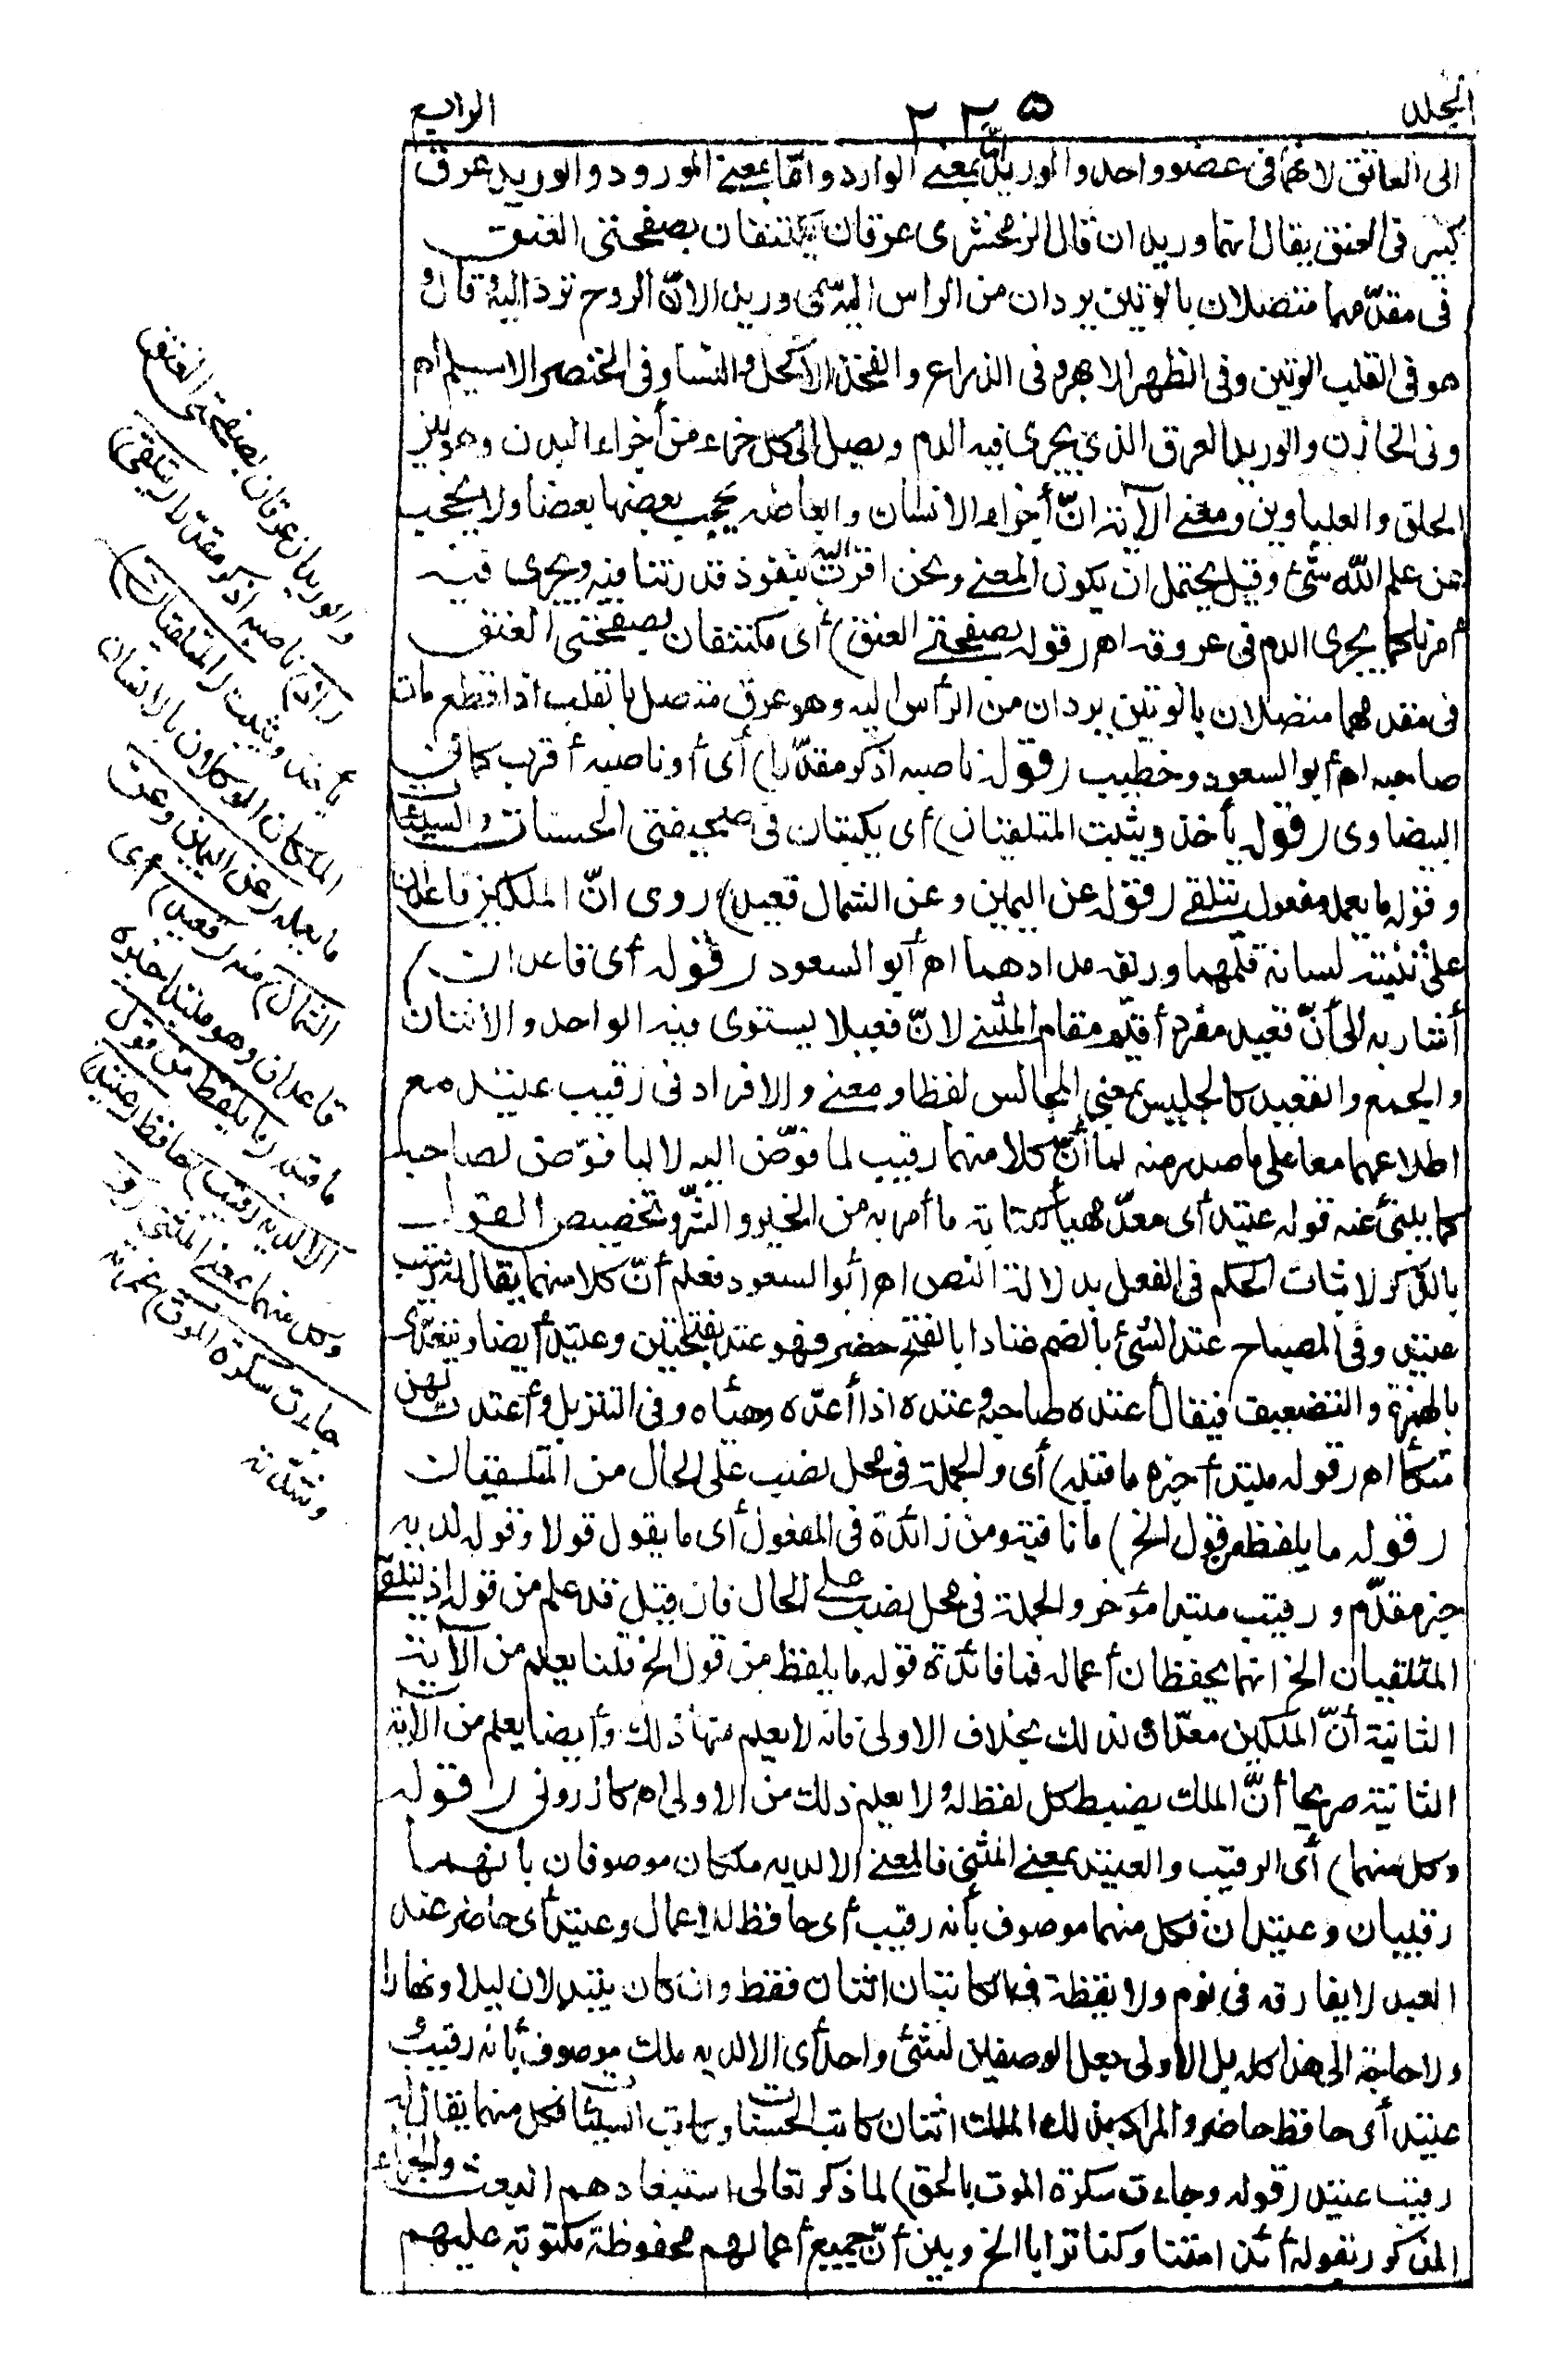 المجلد ٢٢٥ الرابع
الى العاتق لانهما فى عضو واحد والوريد امّا بمعنى الوارد وامّا بمعنى المورود والوريد عرق
كبير فى العنق يقال انهما وريدان قال الزمخشرى عرقان يكتنفان بصفحتى العنق
فى مقدّمهما متصلان بالوتين يردان من الراس اليه سمى وريدا لانّ الروح تردّ اليه وقال
هو فى القلب الوتين وفى الظهر الابهر وفى الذراع والفخذ الاكحل والنسا وفى الخنصر الاسيلم اه
وفى الخازن والوريد العرق الذى يجرى فيه الدم ويصل الى كل جزء من أجزاء البدن وهو بين
الحلق والعلباوين ومعنى الآية انّ أجزاء الانسان وابعاضه يحجب بعضها بعضا ولا يحجب
عن علم الله شئ وقيل يحتمل ان يكون المعنى ونحن اقرب اليه بنفوذ قدرتنا فيه ويجرى فيه
أمرنا كما يجرى الدم فى عروقه اه (قوله بصفحتى العنق) أى مكتنفان بصفحتى العنق
فى مقدمهما متصلان بالوتين يردان من الرأس اليه وهو عرق متصل بالقلب اذا قطع مات
صاحبه اه أبو السعود وخطيب (قوله ناصبه اذكر مقدّرا) أى أو ناصبه أقرب كما فى
البيضاوى (قوله يأخذ ويثبت المتلقيان) أى يكتبان فى صحيفتى الحسنات والسيئات
وقوله ما يعمل مفعول يتلقى (قوله عن اليمين وعن الشمال قعيد) روى انّ الملكين قاعدان
على ثنيته لسانه قلمهما وريقه مدادهما اه أبو السعود (قوله أى قاعدان)
أشار به الى أنّ قعيد مفرد أقيم مقام المثنى لانّ فعيلا يستوى فيه الواحد والاثنان
والجمع والقعيد كالجليس بمعنى المجالس لفظا ومعنى والافراد فى رقيب عتيد مع
اطلاعهما معا على ما صدر منه لما أنّ كلا منهما رقيب لما فوّض اليه لا لما فوّض لصاحبه
كما ينبئ عنه قوله عتيد أى معدّ مهيأ لكتابة ما أمر به من الخير والشرّ وتخصيص القول
بالذكر لاثبات الحكم فى الفعل بدلالة النص اه أبو السعود فعلم أنّ كلا منهما يقال له رقيب
عتيد وفى المصباح عتد الشئ بالضم عتادا بالفتح حضر فهو عتد بفتحتين وعتيد أيضا ويتعدّى
بالهمزة والتضعيف فيقال أعتده صاحبه وعتده اذا أعدّه وهيأه وفى التنزيل وأعتدت لهن
متكأ اه (قوله مبتدأ خبره ما قبله) أى والجملة فى محل نصب على الحال من المتلقيان
(قوله ما يلفظ من قول الخ) ما نافية ومن زائدة فى المفعول أى ما يقول قولا وقوله لديه
خبر مقدّم ورقيب مبتدا مؤخر والجملة فى محل نصب على الحال فان قيل قد علم من قوله اذ يتلقى
المتلقيان الخ انهما يحفظان أعماله فما فائدة قوله ما يلفظ من قول الخ قلنا يعلم من الآية
الثانية أنّ الملكين معدّان لذلك بخلاف الاولى فانه لا يعلم منها ذلك وأيضا يعلم من الآية
الثانية صريحا أنّ الملك يضبط كل لفظ له ولا يعلم ذلك من الاولى اه كازرونى (قوله
وكل منهما) أى الرقيب والعتيد بمعنى المثنى فالمعنى الا لديه ملكان موصوفان بانهما
رقيبان وعتيدان فكل منهما موصوف بأنه رقيب أى حافظ للاعمال وعتيد أى حاضر عند
العبد لا يفارقه فى نوم ولا يقظة فهما كاتبان اثنان فقط وان كان يتبدلان ليلا ونهارا
ولا حاجة الى هذا كله بل الاولى جعل الوصفين لشئ واحد أى الا لديه ملك موصوف بأنه رقيب
عتيد أى حافظ حاضر والمراد بذلك الملك اثنان كاتب الحسنات وكاتب السيئات فكل منهما يقال له
رقيب عتيد (قوله وجاءت سكرة الموت بالحق) لما ذكر تعالى استبعادهم البعث والجزاء
المذكور بقوله أئذا متنا وكنا ترابا الخ وبين أنّ جميع أعمالهم محفوظة مكتوبة عليهم
والوريدان عرقان بصفحتى العنق
(اذ) ناصبه اذكر مقدّرا (يتلقى)
يأخذ ويثبت (المتلقيان)
الملكان الموكلان بالانسان
ما يعمله (عن اليمين وعن
الشمال) منه (قعيد) أى
قاعدان وهو مبتدا خبره
ما قبله (ما يلفظ من قول
الا لديه رقيب) حافظ (عتيد)
وكل منهما بمعنى المثنى (و
جاءت سكرة الموت) غمرته
وشدّته